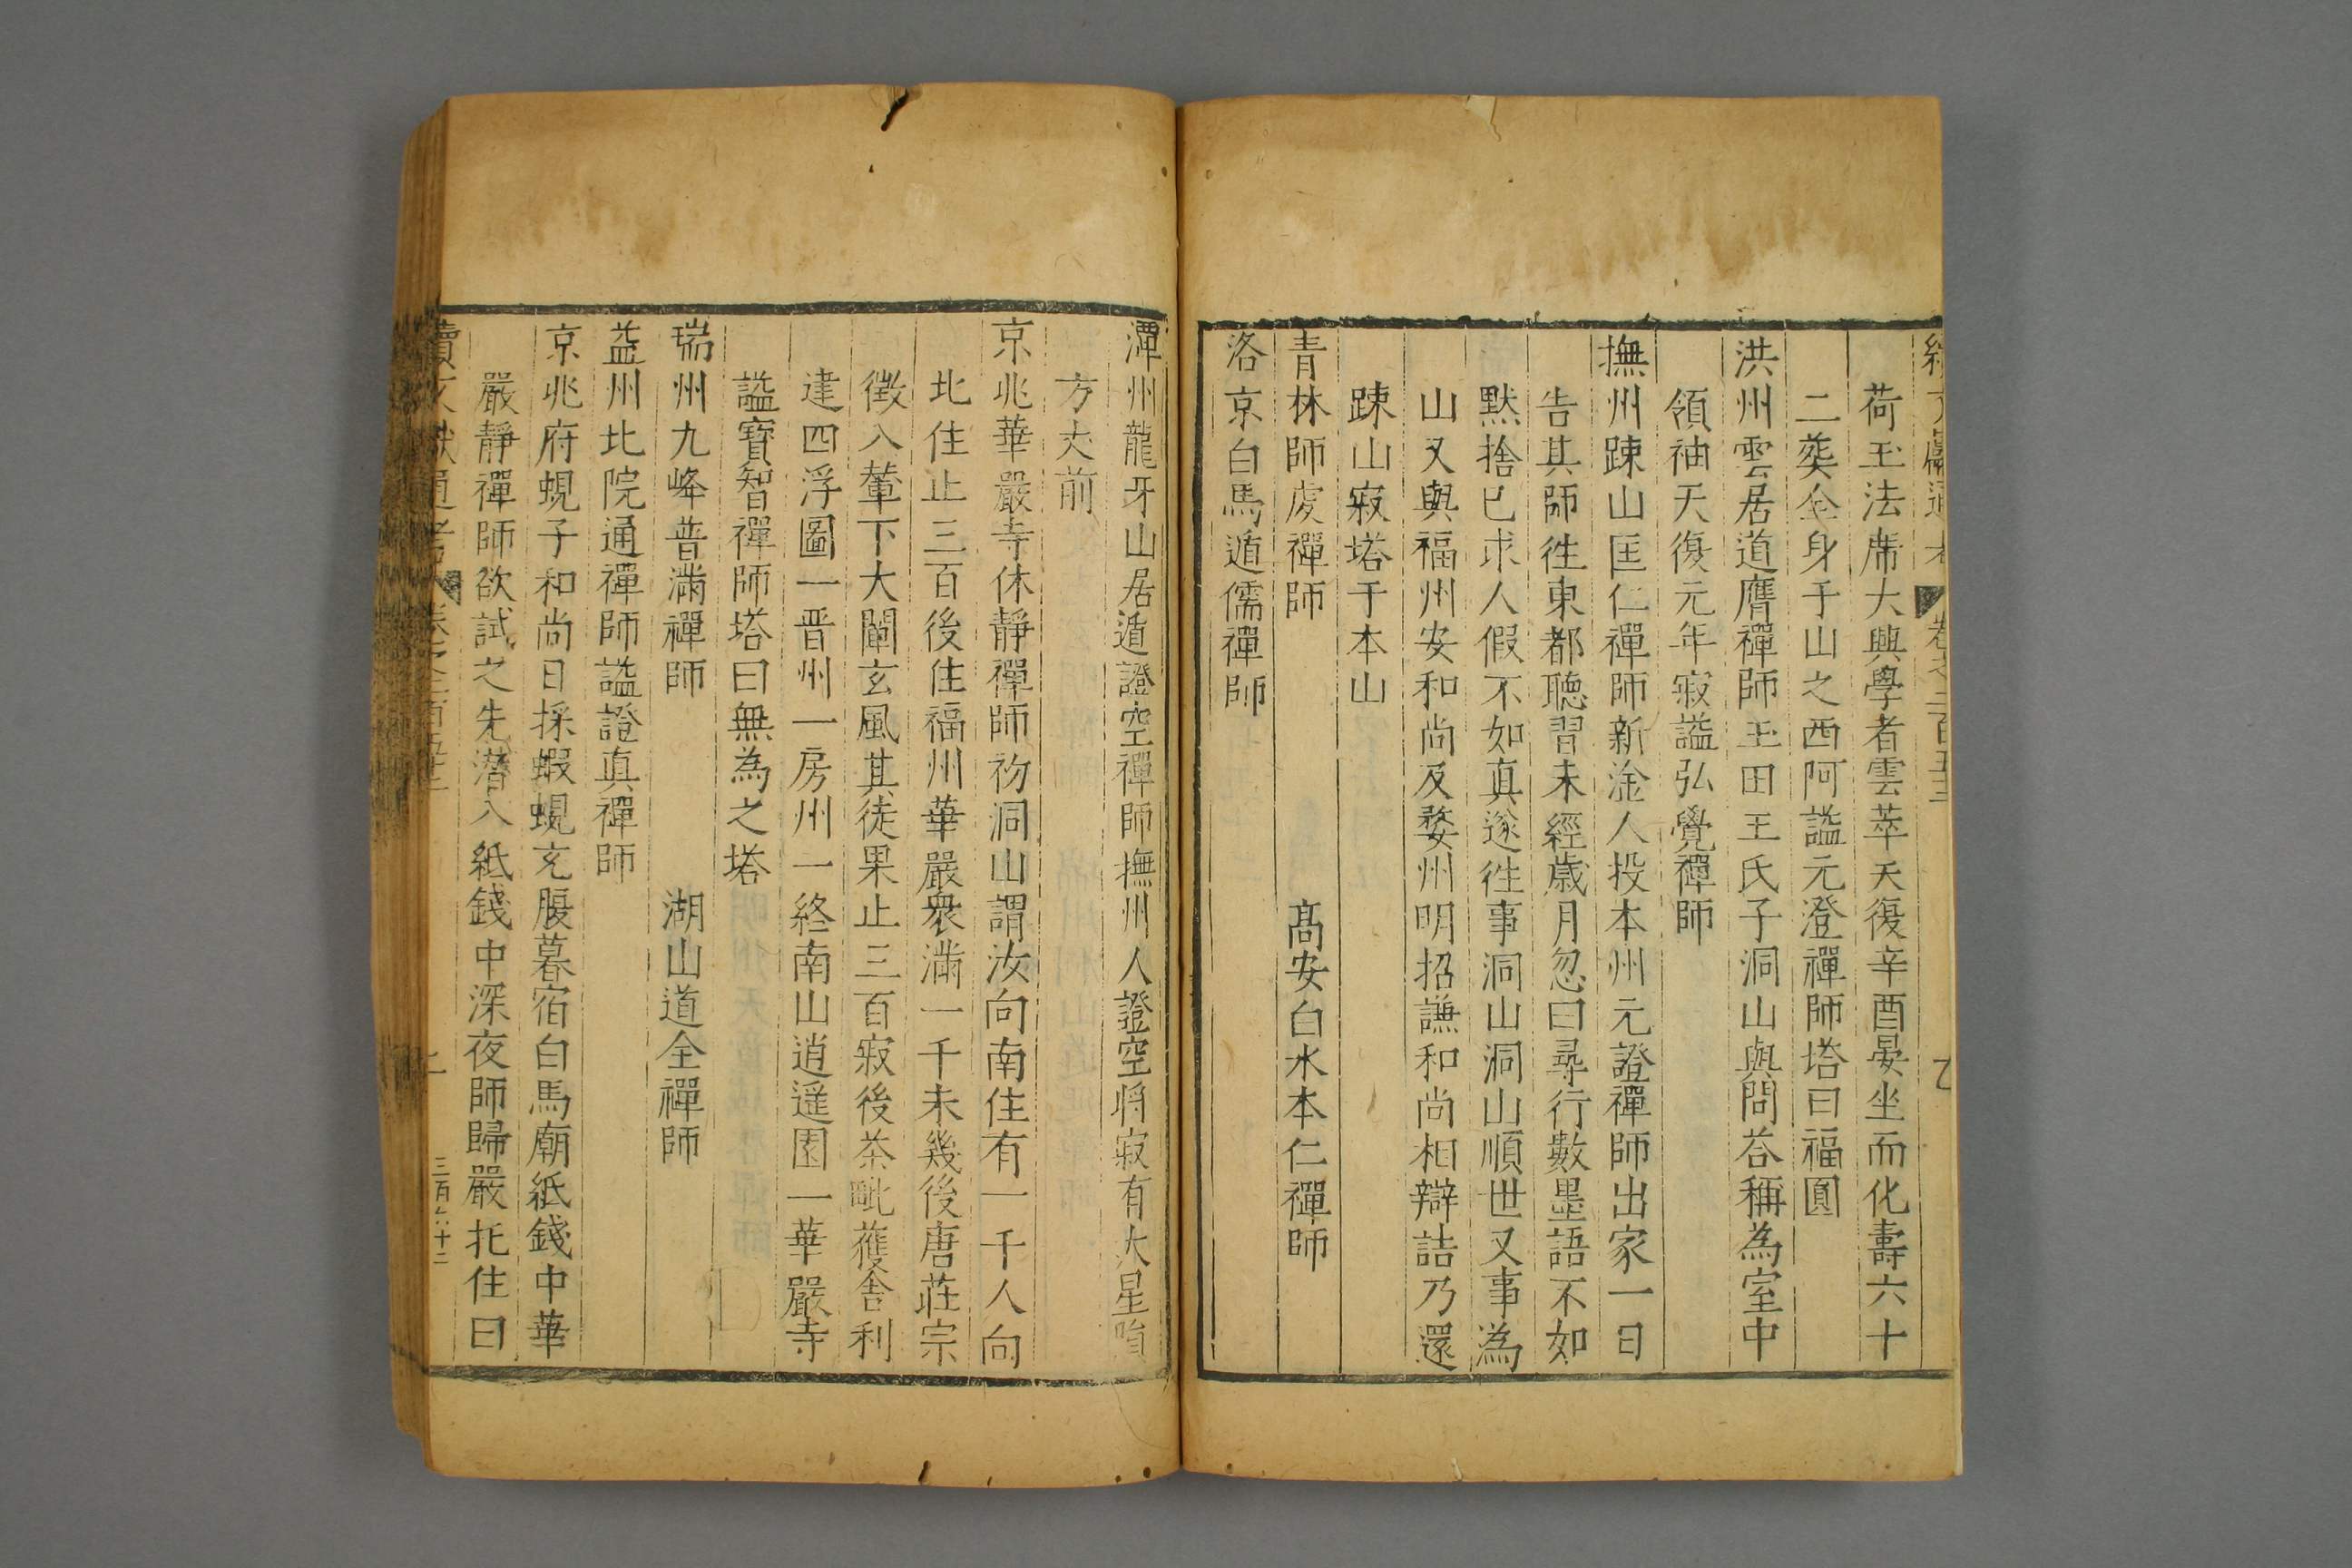 荷玉法席大興學者雲萃天復辛酉晏坐而化壽六十
二葬全身于山之西阿謚元澄禪師塔曰福圓
洪州雲居道膺禪師玉田王氏子洞山與問荅稱為室中
領袖天復元年寂謚弘覺禪師
撫州踈山匡仁禪師新淦人投本州元證禪師出家一日
告其師徃東都聽習未經歲月忽曰尋行數墨語不如
默捨己求人假不如真遂徃事洞山洞山順世又事為
山又與福州安和尚及婺州明招謙和尚相辯詰乃還
踈山寂塔于本山
青林師虔禪師 高安白水本仁禪師
洛京白馬遁儒禪師
潭州龍牙山居遁證空禪師撫州人證空將寂有大星隕
方丈前
京兆華嚴寺休靜禪師初洞山謂汝向南住有一千人向
北住止三百後住福州華嚴衆滿一千未幾後唐莊宗
徵入輦下大闡玄風其徒果止三百寂後茶毗獲舍利
建四浮圖一晋州一房州一終南山逍遥園一華嚴寺
謚寶智禪師塔曰無為之塔
瑞州九峰普滿禪師 湖山道全禪師
益州北院通禪師謚證真禪師
京兆府蜆子和尚日採蝦蜆充腹暮宿白馬廟紙錢中華
嚴靜禪師欲試之先潛入紙錢中深夜師歸嚴扥住曰
三百六十二